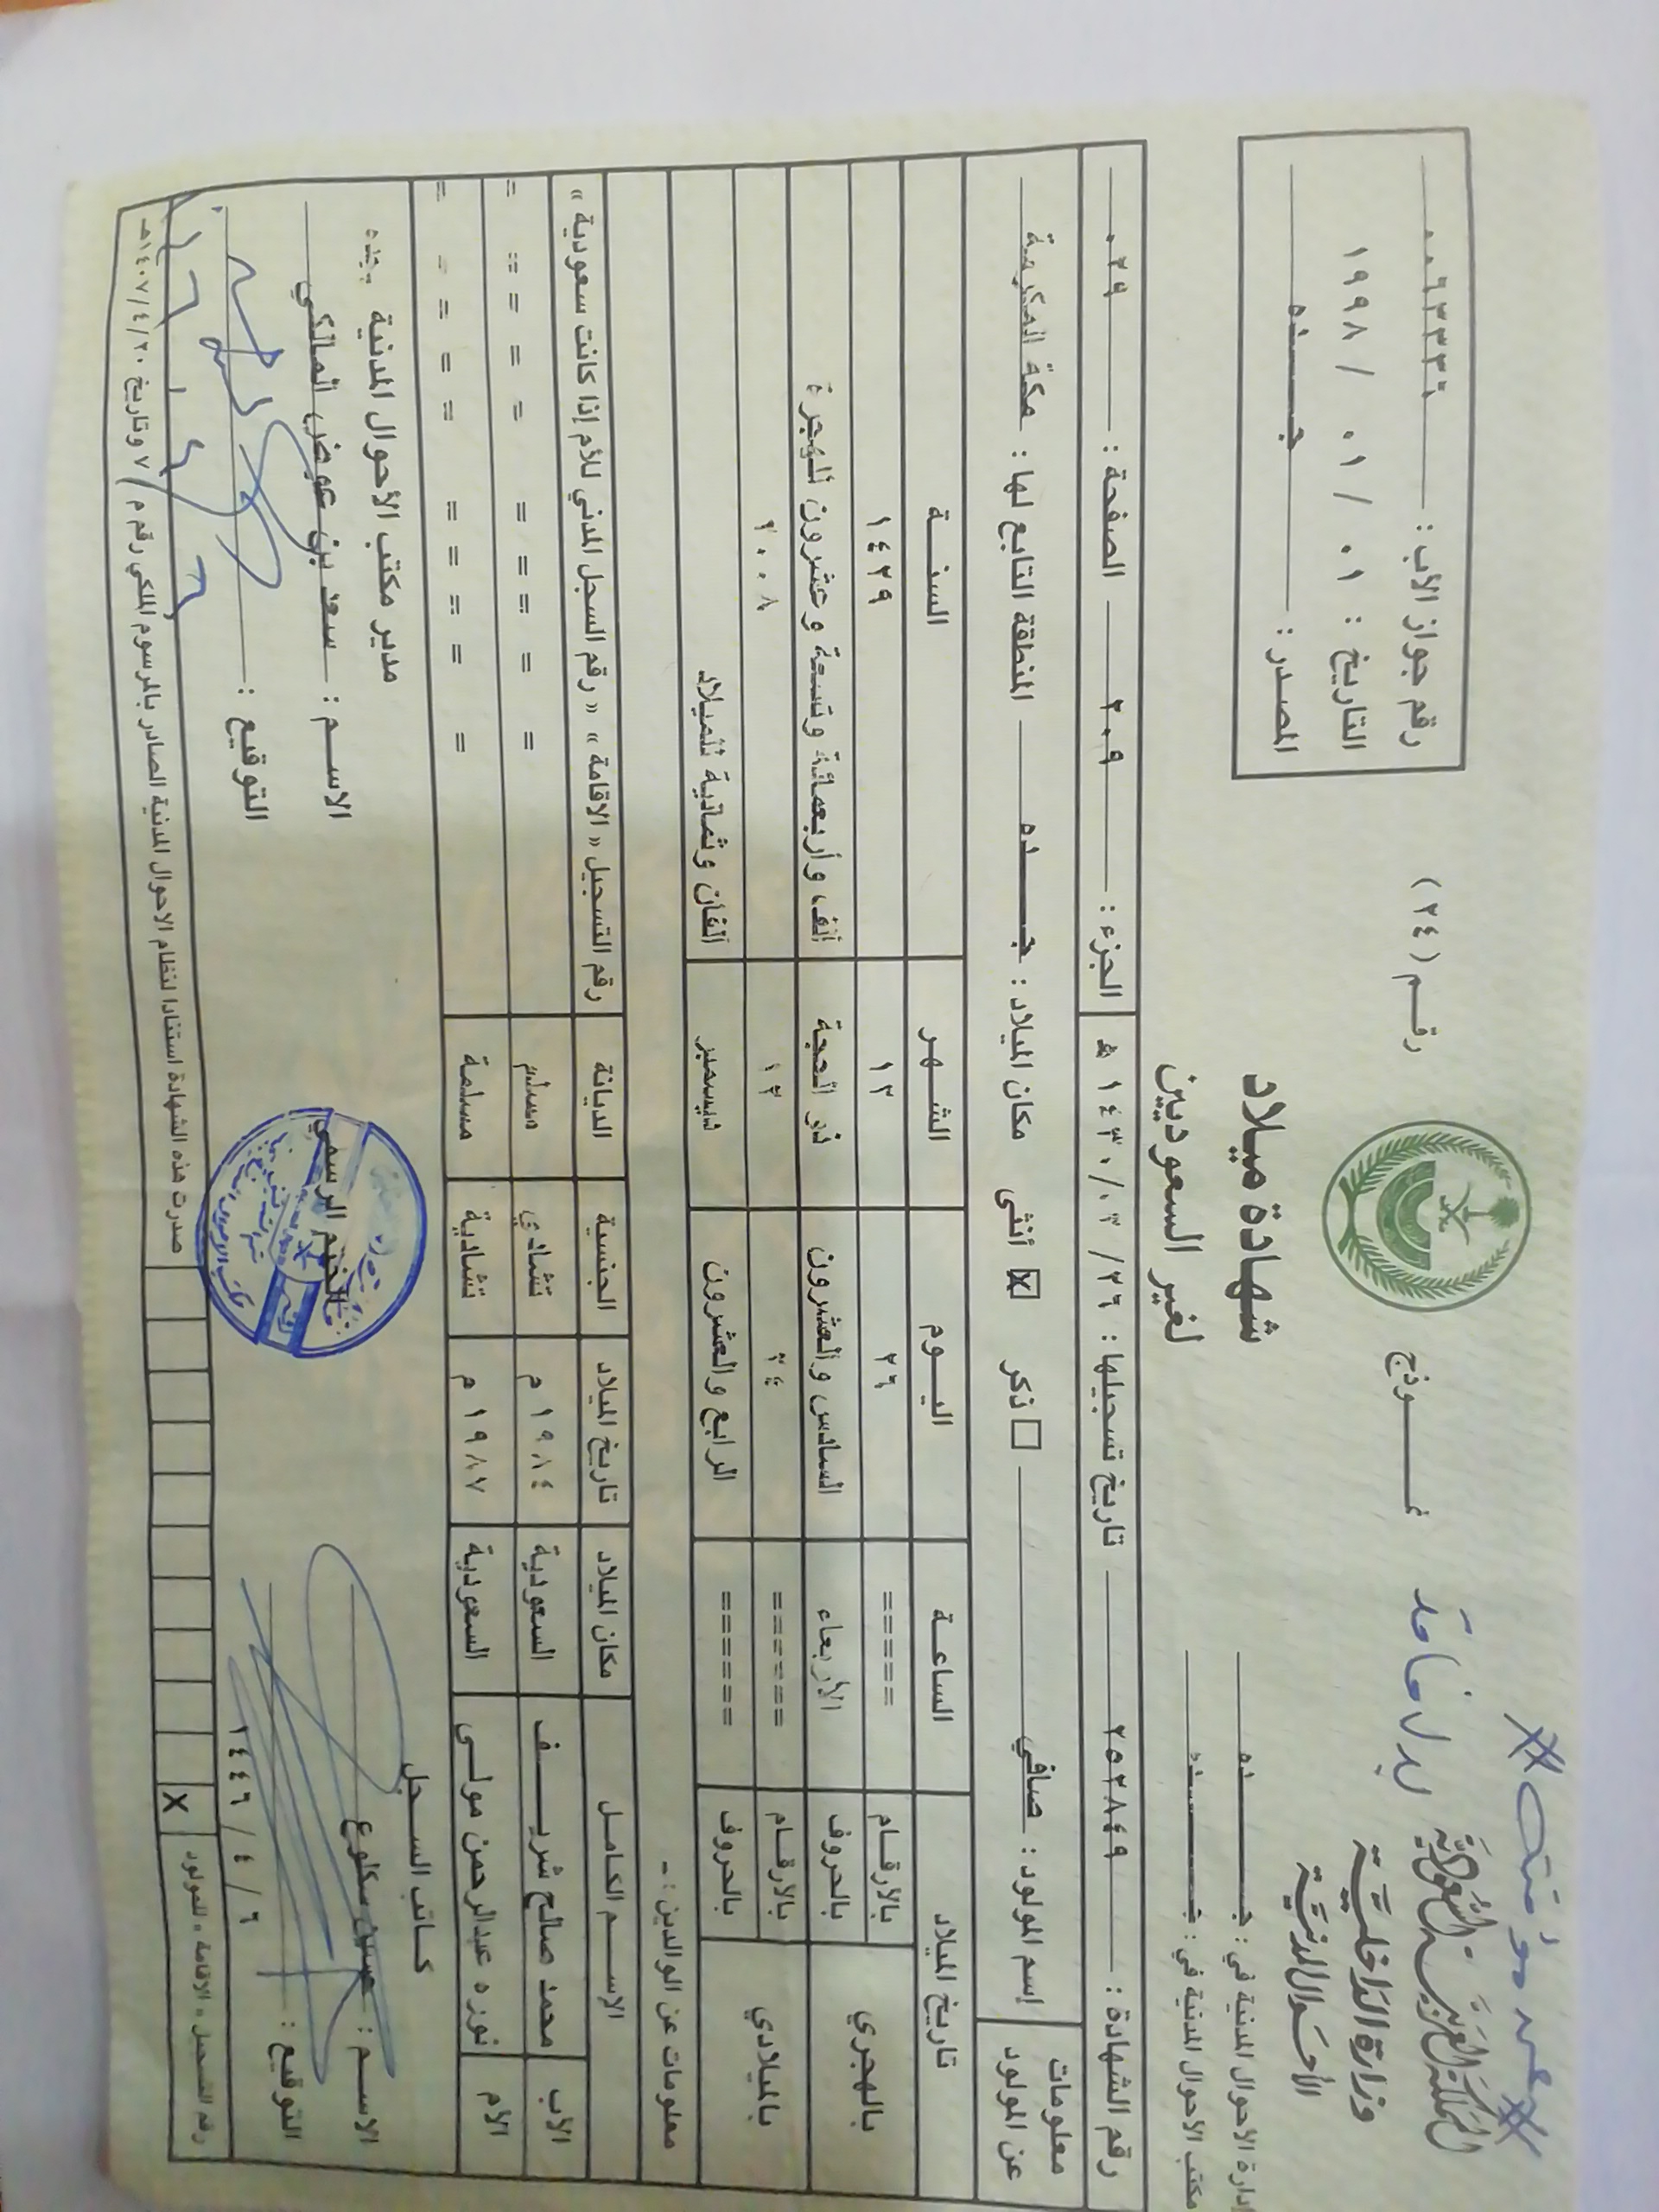 # عدد مؤمنة #
بدل فاقد
المملكة العربية السعودية
وزارة الداخلية
الأحوال المدنية
إدارة الأحوال المدنية في : جـــــــده
مكتب الأحوال المدنية في : جـــــــده
نمـــوذج رقـــم ( ٢٤ )
شهادة ميلاد
لغير السعوديين
رقم جواز الأب :
التاريخ : ٠١ / ٠١ / ١٩٩٨
المصدر : جـــــــده
رقم الشهادة : ٢٥٢٨٤٩ تاريخ تسجيلها : ٢٦ / ٠٣ / ١٤٣٠ هـ الجزء : ٢٠٩ الصفحة : ٠٢٩
معلومات عن المولود
إسم المولود : صافي □ ذكر ☒ أنثى مكان الميلاد : جـــــــده المنطقة التابع لها : مكة المكرمة
تاريخ الميلاد الساعـــة اليـــوم الشـــهر السنـــة
بالهجري بالأرقـــام ===== ٢٦ ١٢ ١٤٢٩
بالحروف الأربعاء السادس والعشرون ذو الحجة الف وأربعمائة وتسعة وعشرون للهجرة
بالميلادي بالأرقـــام ====== ٢٤ ١٢ ٢٠٠٨
بالحروف ====== الرابع والعشرون ديسمبر الفان وثمانية للميلاد
معلومات عن الوالدين : -
الإســـم الكامـــل مكان الميلاد تاريخ الميلاد الجنسية الديانة رقم التسجيل « الاقامة » « رقم السجل المدني للأم إذا كانت سعودية »
الأب محمد صالح شريـــــف السعودية ١٩٨٤ م تشادي مسلم = = = = = = = = =
الأم نوره عبدالرحمن مولـــى السعودية ١٩٨٧ م تشادية مسلمة = = = = = = = = =
كـــاتب الســـجل
الاســـم :
التوقيع :
٦ / ٤ / ١٤٤٦
الختم الرسمي
مدير مكتب الأحوال المدنية بجده
الاســـم : سعد بن عوض المالكي
التوقيع :
رقم التسجيل « الاقامة » للمولود X
صدرت هذه الشهادة استنادا لنظام الاحوال المدنية الصادر بالمرسوم الملكي رقم م / ٧ وتاريخ ١٤٠٧/٤/٢٠هـ